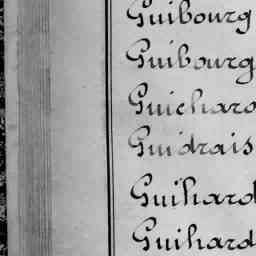 Guibourg
Guibourg
Guichard
Guidrais
Guihard
Guihard